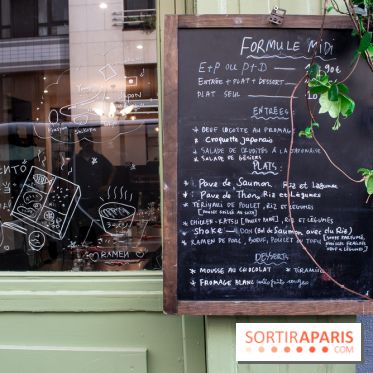 FORMULE MIDI
E+P ou P+D
ENTRÉE + PLAT + DESSERT
PLAT SEUL
ENTRÉES
* OEUF COCOTTE AU FROMAGE
* Croquette Japonais
* SALADE DE CRUDITÉS À LA JAPONAISE
* SALADE DE GÉSIERS
PLATS
* Pave de Saumon, Riz et Légumes
* Pave de Thon, Riz et Légumes
* TERIYAKI DE POULET, RIZ ET LÉGUMES
* CHIKEN-KATSU [POULET PANÉ], RIZ ET LÉGUMES
* Shake-DON (Bol de Saumon avec du Riz)
* RAMEN DE PORC, BOEUF, POULET OU TOFU
DESSERTS
* MOUSSE AU CHOCOLAT * TIRAMISU
* FROMAGE BLANC
BENTO
RAMEN
SORTIRAPARIS
.COM